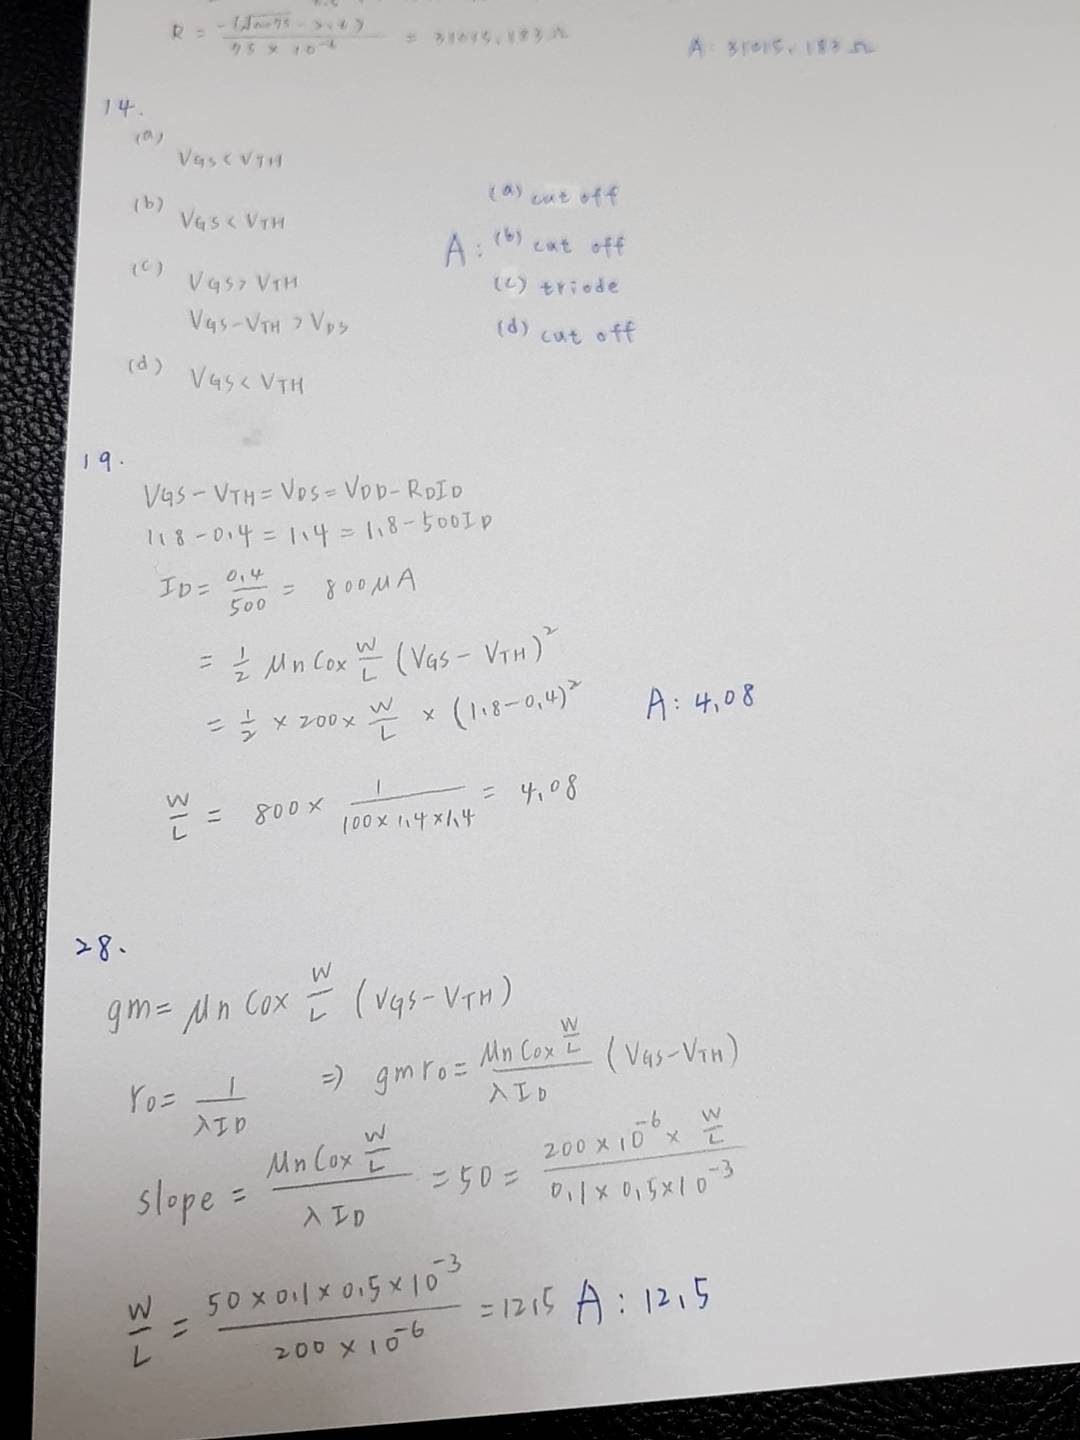 R = / 75 × 10⁻⁶ = Ω
A: 31015.183Ω
14.
(a)
VGS < VTH
(b)
VGS < VTH
(c)
VGS > VTH
VGS - VTH > VDS
(d)
VGS < VTH
A:
(a) cut off
(b) cut off
(c) triode
(d) cut off
19.
VGS - VTH = VDS = VDD - RDID
1.8 - 0.4 = 1.4 = 1.8 - 500ID
ID = 0.4/500 = 800μA
= 1/2 μnCox W/L (VGS - VTH)²
= 1/2 × 200 × W/L × (1.8 - 0.4)²
A: 4.08
W/L = 800 × 1/(100 × 1.4 × 1.4) = 4.08
28.
gm = μnCox W/L (VGS - VTH)
ro = 1/(λID) ⇒ gmro = (μnCox W/L)/(λID) (VGS - VTH)
slope = (μnCox W/L)/(λID) = 50 = (200 × 10⁻⁶ × W/L)/(0.1 × 0.5 × 10⁻³)
W/L = (50 × 0.1 × 0.5 × 10⁻³)/(200 × 10⁻⁶) = 12.5 A: 12.5